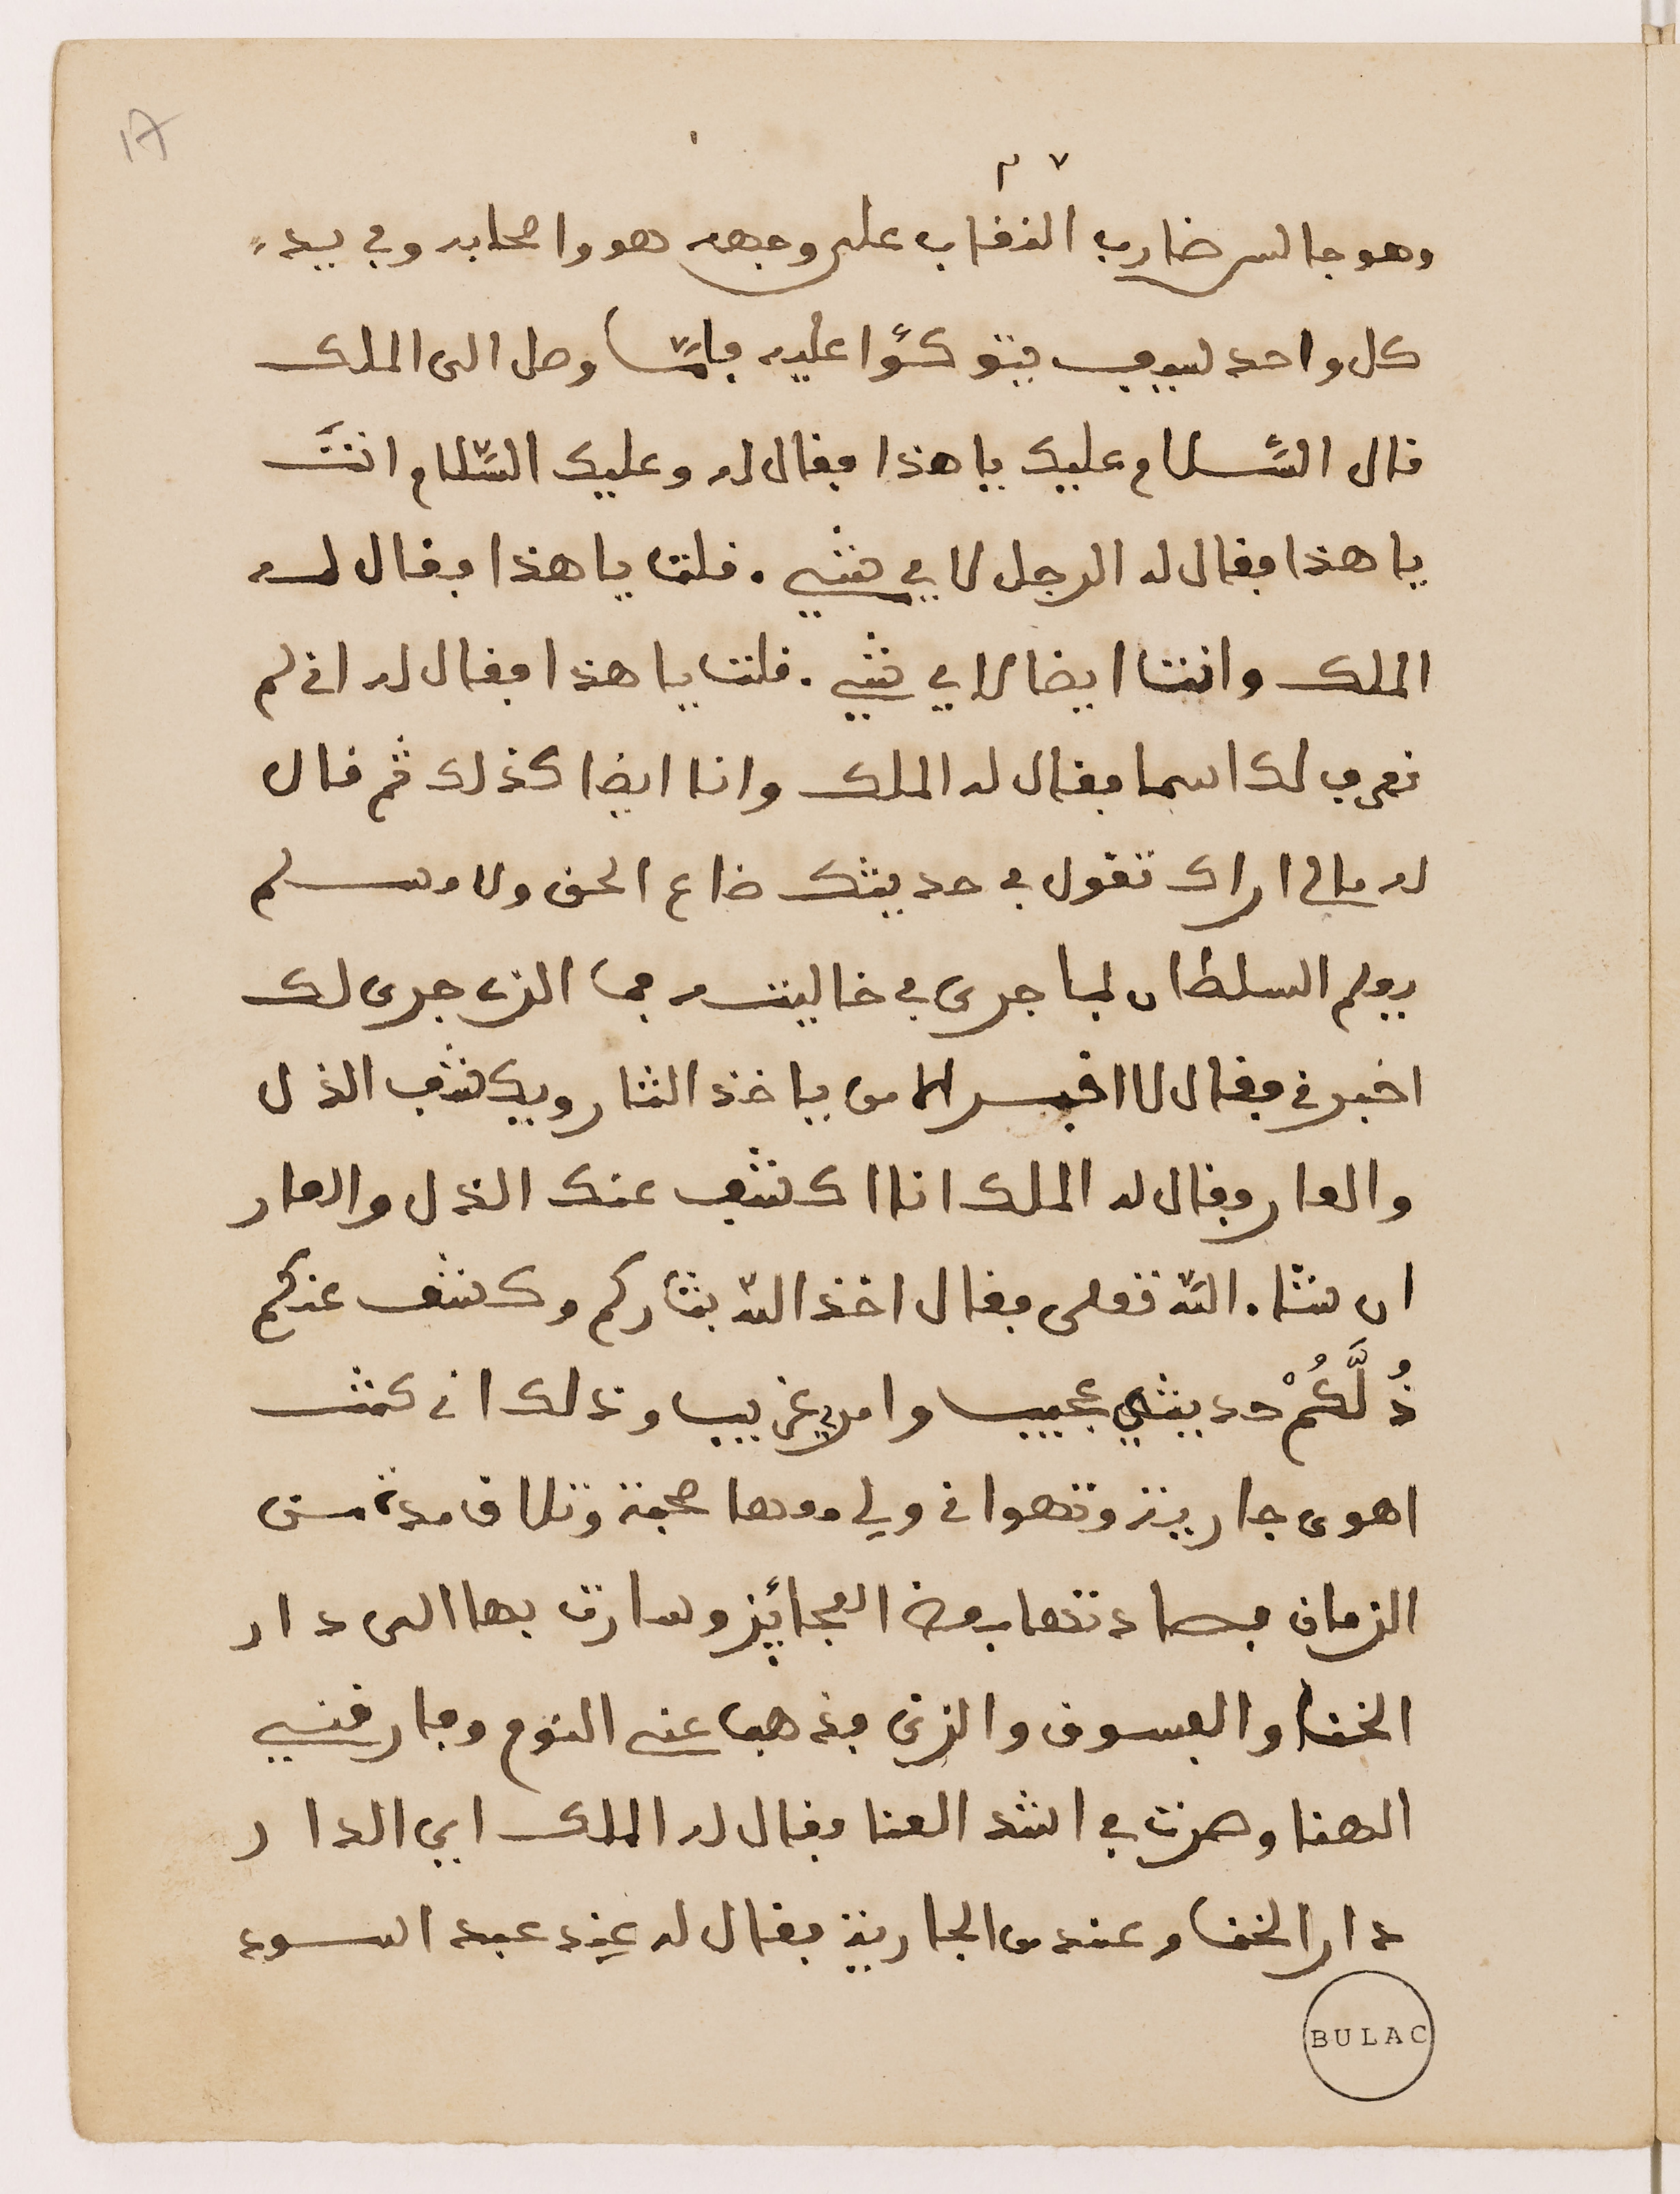 17
وهو جالس ضارب النقاب على وجهه هو واصحابه وفي يد
كل واحد سيف يتوكؤا عليه فلمّا وصل الى الملك
قال السَّلام عليك يا هذا فقال له وعليك السَّلام انتَ
يا هذا فقال له الرجل لاي شيء قلت يا هذا فقال له
الملك وانت ايضا لاي شيء قلت يا هذا فقال له اني لم
نعرف لك اسما فقال له الملك وانا ايضا كذلك ثم قال
له مالي اراك تقول في حديثك ضاع الحق ولا مسلم
يعلم السلطان لما جرى في خاليته فما الذي جرى لك
اخبرني فقال لا اخبر الا من ياخذ الثار ويكشف الذل
والعار فقال له الملك انا اكشف عنك الذل والعار
ان شاء اللّه تعلى فقال اخذ اللّه بثاركم وكشف عنكم
ذُلَّكُمْ حديثي عجيب وامري غريب وذلك اني كنت
اهوى جارية وتهواني ولي معها صحبة وتلاق مدة من
الزمان فصادتها بعض العجائز وسارت بها الى دار
الخنا والفسوق والزنى فذهب عني النوم وفارقني
الهنا وصرت في اشد العنا فقال له الملك اي الدار
دار الخنا وعند من الجارية فقال له عند عبد اسود
BULAC